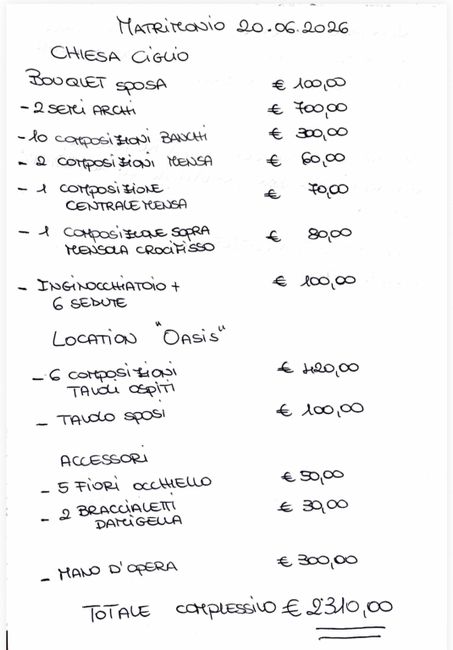 MATRIMONIO 20.06.2026
CHIESA CIGLIO
BOUQUET SPOSA € 100,00
- 2 SEMI ARCHI € 700,00
- 10 COMPOSIZIONI BANCHI € 300,00
- 2 COMPOSIZIONI MENSA € 60,00
- 1 COMPOSIZIONE € 70,00
CENTRALE MENSA
- 1 COMPOSIZIONE SOPRA € 80,00
MENSOLA CROCIFISSO
- INGINOCCHIATOIO + € 100,00
6 SEDUTE
LOCATION "OASIS"
- 6 COMPOSIZIONI € 420,00
TAVOLI OSPITI
- TAVOLO SPOSI € 100,00
ACCESSORI
- 5 FIORI OCCHIELLO € 50,00
- 2 BRACCIALETTI € 30,00
DAMIGELLA
- MANO D'OPERA € 300,00
TOTALE COMPLESSIVO € 2310,00